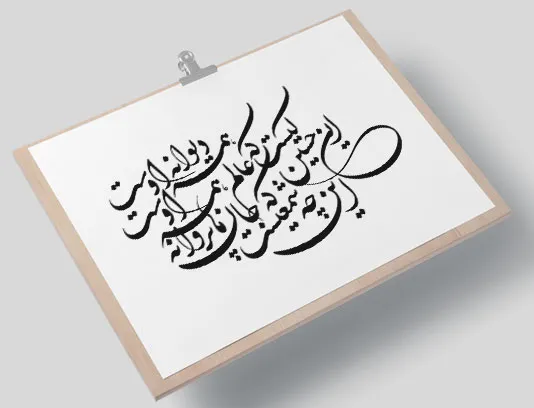 این حسین کیست که عالم همه دیوانه اوست
این چه شمعیست که جانها همه پروانه اوست